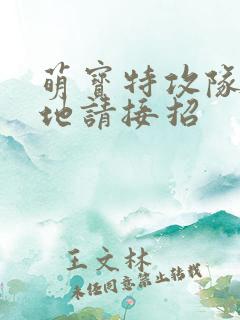 萌寶特攻隊
地請接招
王文林
未經同意禁止轉載